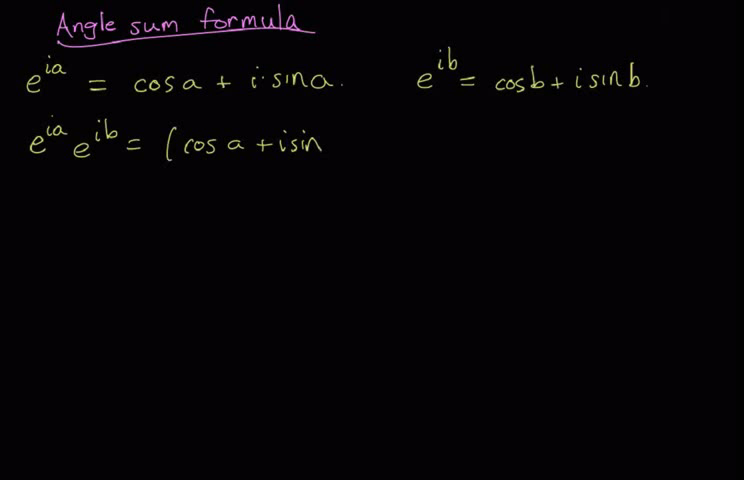 Angle sum formula
e^{ia} = cos a + i·sin a.
e^{ib} = cos b + i sin b.
e^{ia} e^{ib} = (cos a + i sin